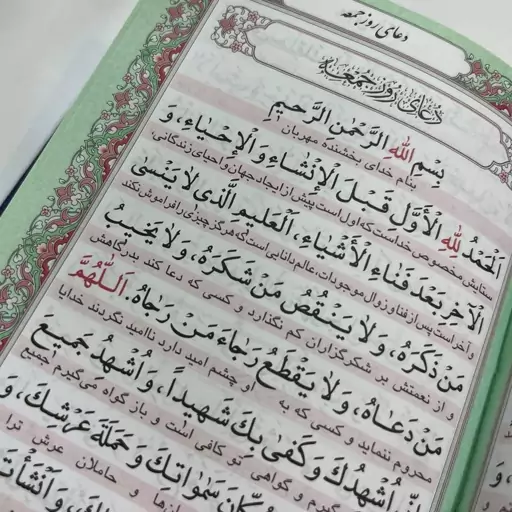 دعای روز جمعه
دعای روز جمعه
بِسْمِ اللهِ الرَّحْمٰنِ الرَّحيمِ
بنام خدای بخشنده مهربان
اَلْحَمْدُ لِلّٰهِ الْاَوَّلِ قَبْلَ الْاِنْشاءِ وَالْاِحْياءِ، وَ
ستایش مخصوص خداست که اول است پیش از ایجاد جهان و احیای زندگانی،
الْاٰخِرِ بَعْدَ فَناءِ الْاَشْياءِ، اَلْعَليمِ الَّذى لا يَنْسىٰ
و آخر است پس از فنا و زوال موجودات، عالم دانایی است که هرگز چیزی را فراموش نکند
مَنْ ذَكَرَهُ، وَلا يَنْقُصُ مَنْ شَكَرَهُ، وَلا يَخيبُ
و از نعمتش بر شکرگزاران کم نگذارد و کسی که دعا کند بدرگاهش
مَنْ دَعاهُ، وَلا يَقْطَعُ رَجاءَ مَنْ رَجاهُ، اَللّٰهُمَّ
محروم ننماید و کسی که به او چشم امید دارد ناامید نگردند خدایا
اِنّى اُشْهِدُكَ وَ كَفىٰ بِكَ شَهيداً، وَ اُشْهِدُ جَميعَ
گیرم و گواهی تو کافی است و باز گواه می‌گیرم جمیع
سُكّانِ سَمٰواتِكَ وَ حَمَلَةَ عَرْشِكَ، وَ
و حاملان عرش ترا
وَ اَنْشَأْتَ